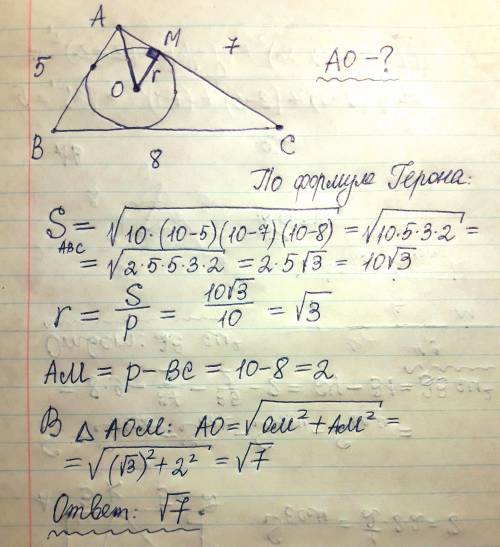 A
M
7
AO - ?
5
O
r
B
C
8
По формула Герона:
S ABC = √(10·(10-5)(10-7)(10-8)) = √(10·5·3·2) =
= √(2·5·5·3·2) = 2·5√3 = 10√3
r = S/p = 10√3/10 = √3
AM = p - BC = 10-8 = 2
В △ AOM: AO = √(OM² + AM²) =
= √((√3)² + 2²) = √7
Ответ: √7.